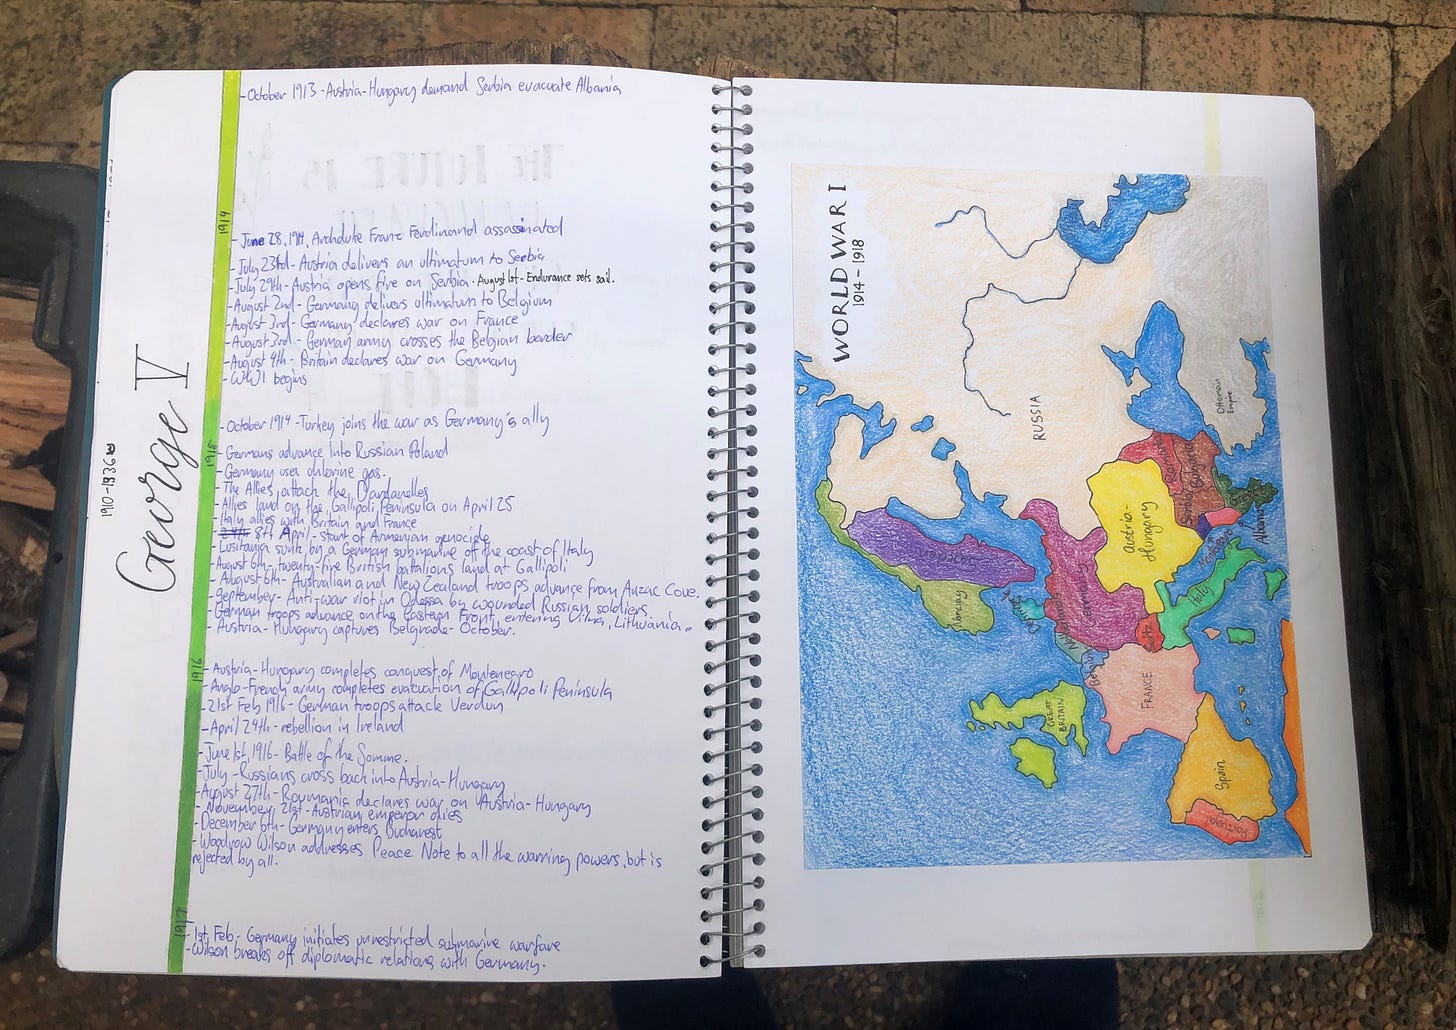 - October 1913 - Austria-Hungary demand Serbia evacuate Albania
1914
- June 28, 1914, Archduke Franz Ferdinand assassinated
- July 23rd - Austria delivers an ultimatum to Serbia
- July 29th - Austria opens fire on Serbia. August 1st - Endurance sets sail.
- August 2nd - Germany delivers ultimatum to Belgium
- August 3rd - Germany declares war on France
- August 3rd - German army crosses the Belgian border
- August 4th - Britain declares war on Germany
- WW1 begins
- October 1914 - Turkey joins the war as Germany's ally
1915
- Germans advance into Russian Poland
- Germany uses chlorine gas.
- The Allies attack the Dardanelles
- Allies land on the Gallipoli Peninsula on April 25
- Italy allies with Britain and France
- 8th April - start of Armenian genocide
- Lusitania sunk by a German submarine off the coast of Italy
- August 6th - twenty-five British batallions land at Gallipoli
- August 6th - Australian and New Zealand troops advance from Anzac Cove.
- September - Anti-war riot in Odessa by wounded Russian soldiers.
- German troops advance on the Eastern Front, entering Vilna, Lithuania.
- Austria-Hungary captures Belgrade - October.
1916
- Austria-Hungary completes conquest of Montenegro
- Anglo-French army completes evacuation of Gallipoli Peninsula
- 21st Feb 1916 - German troops attack Verdun
- April 24th - rebellion in Ireland
- June 1st, 1916 - Battle of the Somme.
- July - Russians cross back into Austria-Hungary
- August 27th - Roumania declares war on Austria-Hungary
- November 21st - Austrian emperor dies
- December 6th - Germany enters Bucharest
- Woodrow Wilson addresses Peace Note to all the warring powers, but is
rejected by all.
1917
- 1st Feb - Germany initiates unrestricted submarine warfare
- Wilson breaks off diplomatic relations with Germany.
George V
1910-1936
WORLD WAR I
1914 - 1918
RUSSIA
Ottoman
Empire
Romania
Bulgaria
Serbia
Austria-
Hungary
Albania
Montenegro
Italy
Sweden
Norway
Germany
Belgium
GREAT
BRITAIN
FRANCE
Spain
Portugal